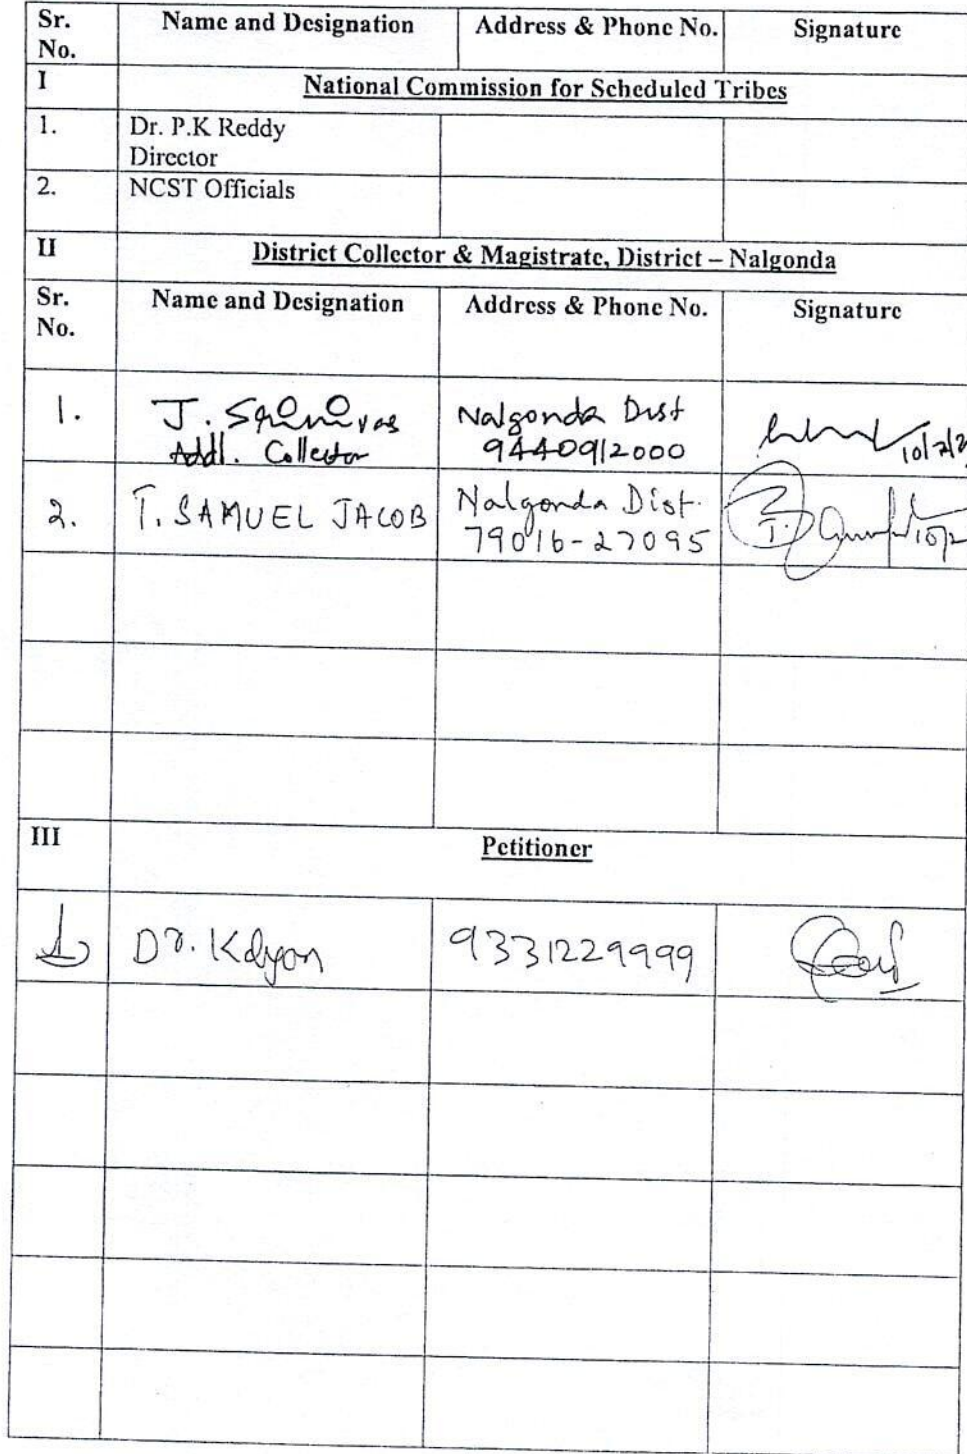 Sr.
No.
Name and Designation
Address & Phone No.
Signature
I
National Commission for Scheduled Tribes
1.
Dr. P.K Reddy
Director
2.
NCST Officials
II
District Collector & Magistrate, District – Nalgonda
Sr.
No.
Name and Designation
Address & Phone No.
Signature
1.
J. Srinivas
Addl. Collector
Nalgonda Dist
9440912000
2.
T. SAMUEL JACOB
Nalgonda Dist.
79016-27095
III
Petitioner
1
Dr. Kalyan
9331229999